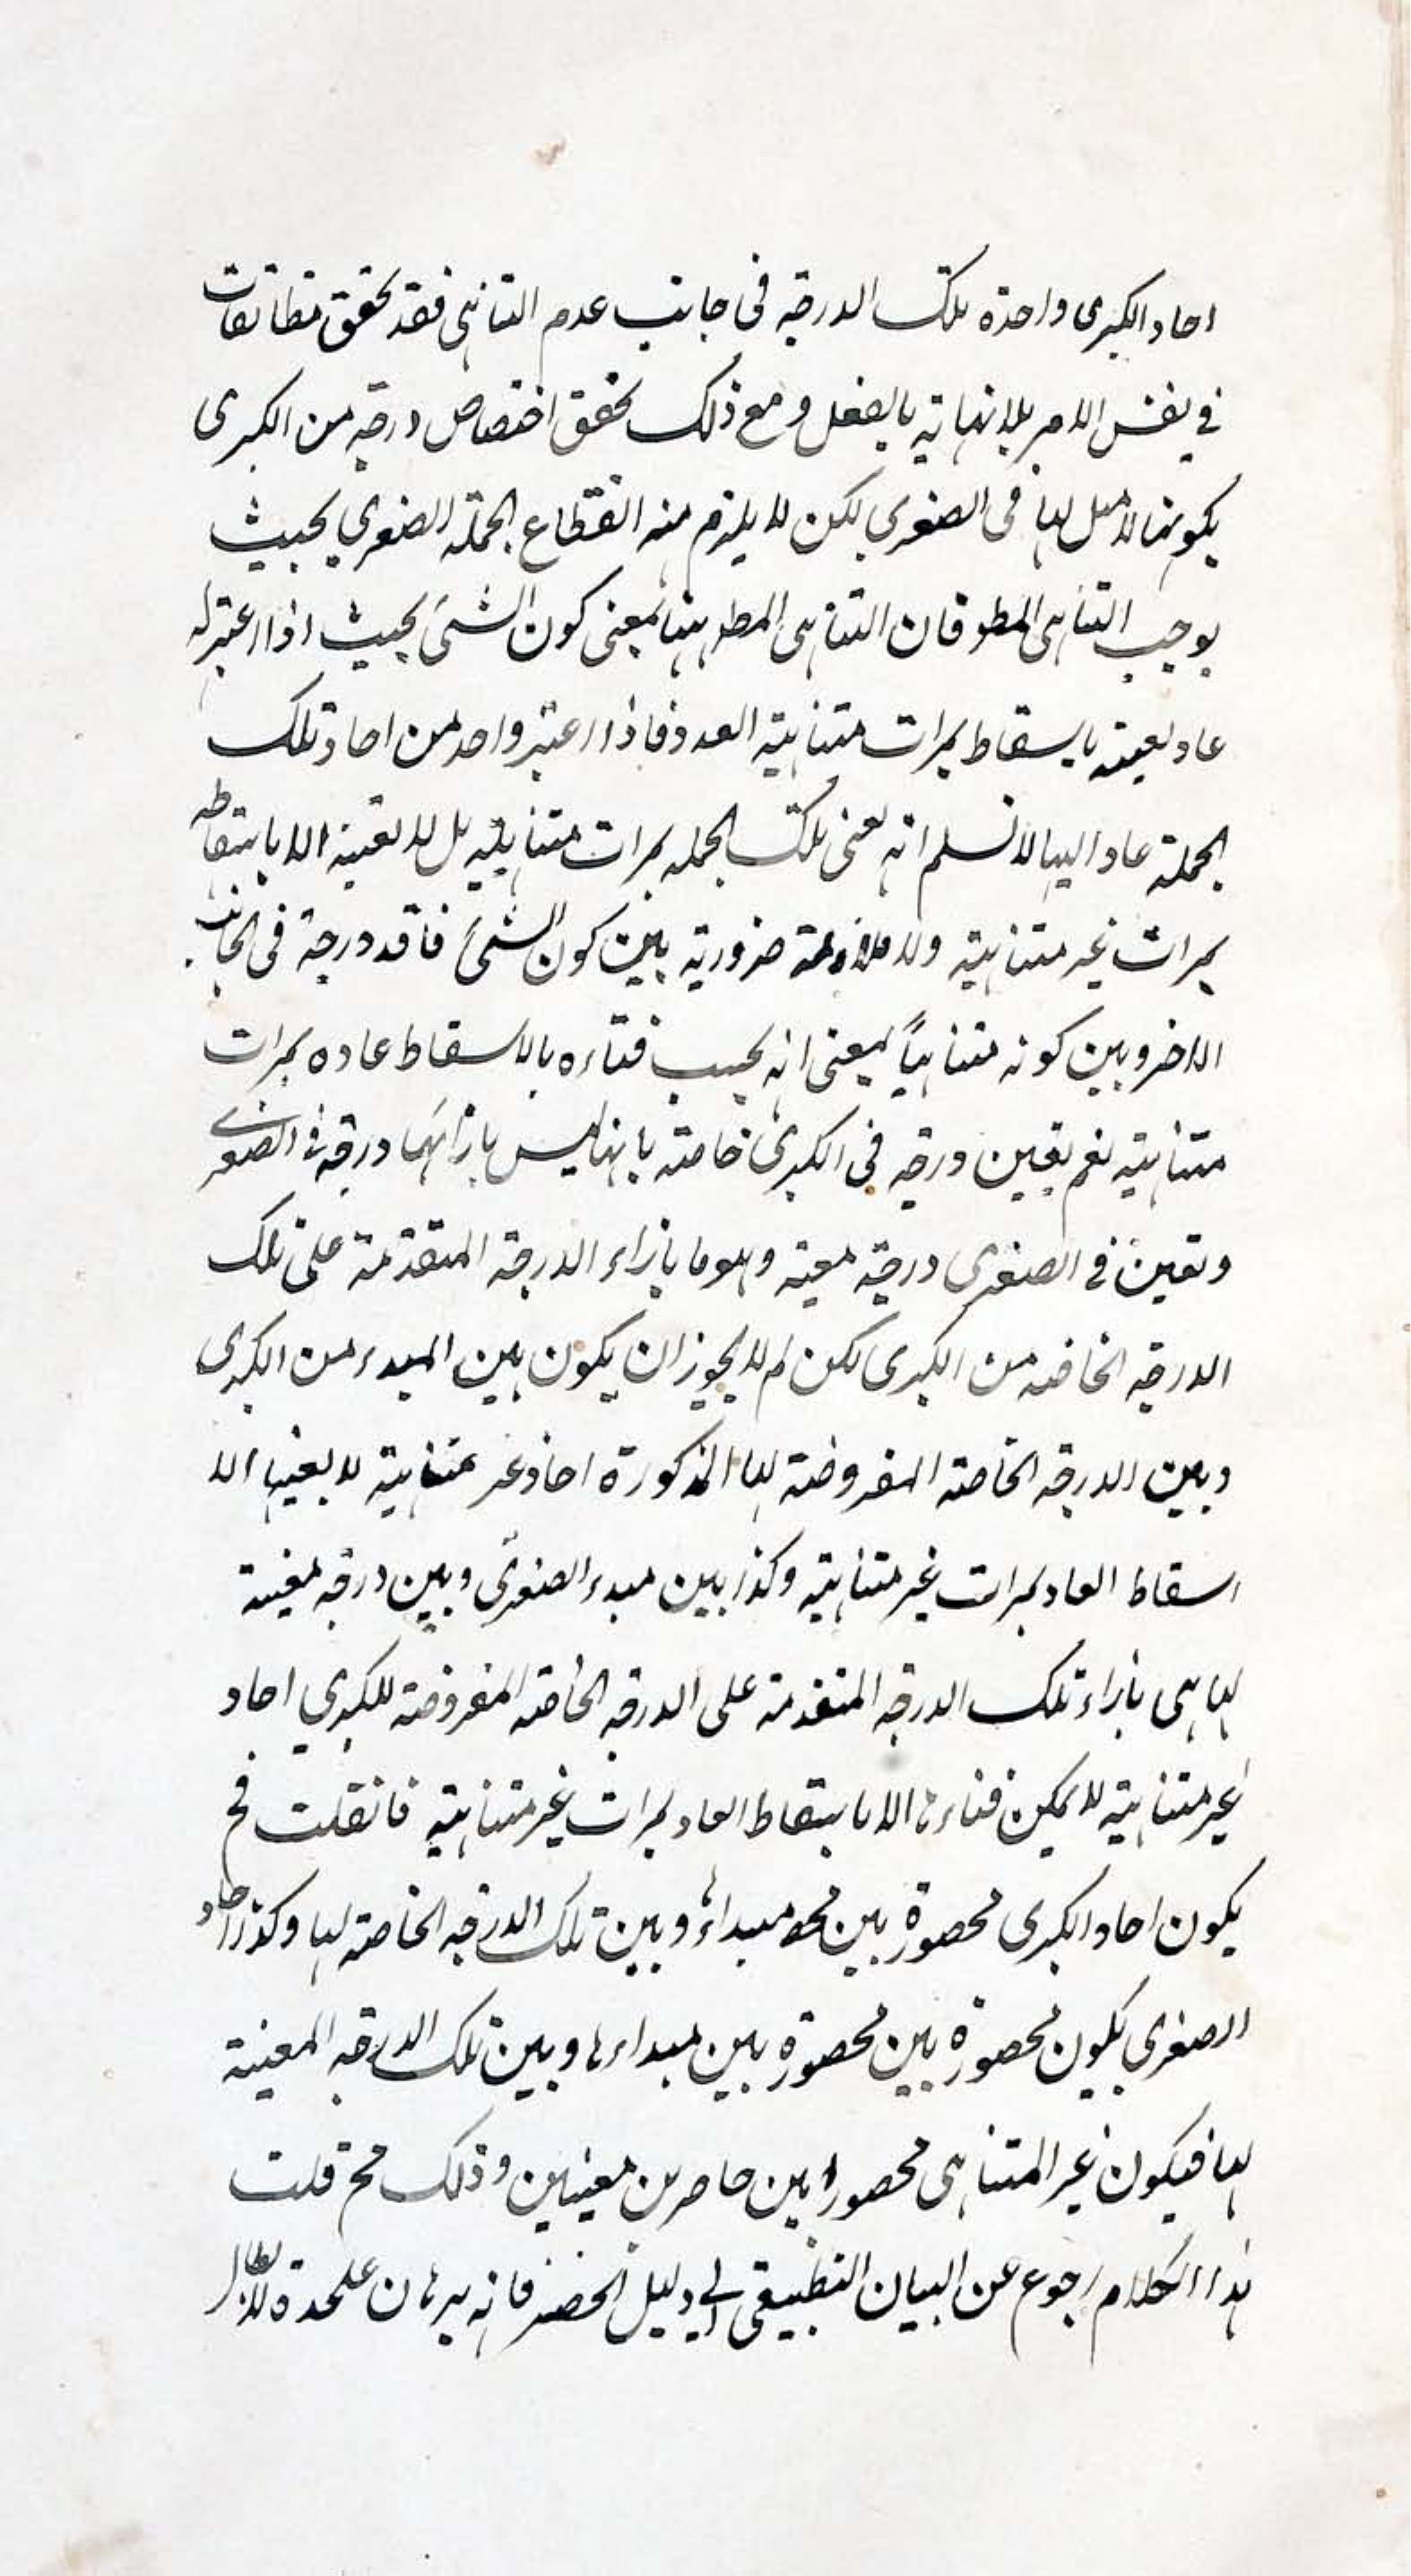 احاد الكبرى واحدة تلك الدرجة في جانب عدم التناهى فقد تحقق تطابقات
في نفس الامر بلا نهاية بالفعل ومع ذلك تحقق اختصاص درجة من الكبرى
بكونها لا مثل لها في الصغرى لكن لا يلزم منه انقطاع الجملة الصغرى بحيث
يوجب التناهى المط فان التناهى المط ههنا بمعنى كون الشئ بحيث اذا اعتبر له
عاد يفنيه باسقاط بمرات متناهية العدد فاذا اعتبر واحد من احاد تلك
الجملة عادا لها لا نسلم انه يفنى تلك الجملة بمرات متناهية بل لا يفنيه الا باسقاطه
بمرات غير متناهية ولا ملازمة ضرورية بين كون الشئ فاقد درجة في الجانب
الاخر وبين كونه متناهياً بمعنى انه يجب فناءه بالاسقاط عاده بمرات
متناهية نعم يقين درجة في الكبرى خاصة بانها ليس بازائها درجة في الصغرى
وتعين في الصغرى درجة معينة وهو ما بازاء الدرجة المتقدمة على تلك
الدرجة الخاصة من الكبرى لكن لم لا يجوز ان يكون بين المبدء من الكبرى
وبين الدرجة الخاصة المفروضة لها المذكورة احاد غير متناهية لا يفنيها الا
اسقاط العاد بمرات غير متناهية وكذا بين مبدء الصغرى وبين درجة معينة
لها هى بازاء تلك الدرجة المتقدمة على الدرجة الخاصة المفروضة للكبرى احاد
غير متناهية لا يمكن فناءها الا باسقاط العاد بمرات غير متناهية فان قلت فح
يكون احاد الكبرى محصورة بين مبداءها وبين تلك الدرجة الخاصة لها وكذا احاد
الصغرى يكون محصورة بين محصورة بين مبداءها وبين تلك الدرجة المعينة
لها فيكون غير المتناهى محصورا بين حاصرين معينين وذلك مح قلت
هذا الكلام رجوع عن البيان التطبيقى الى دليل الحصر فانه برهان عليحدة لابطال